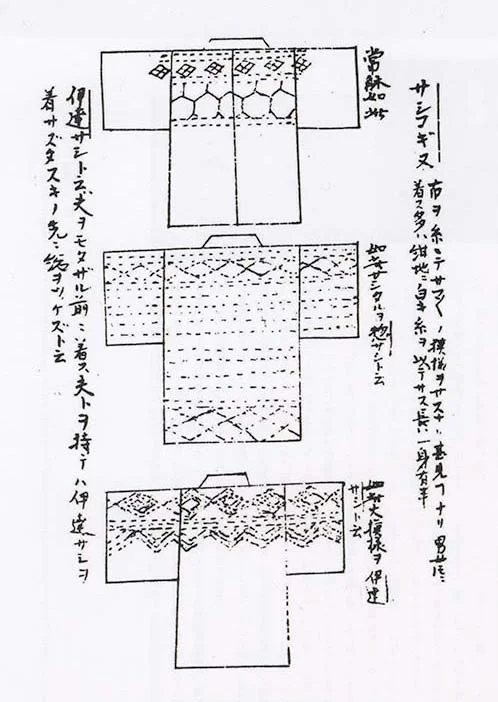 サシコギヌ
布ヲ糸ニテサマ〱ノ模様ヲサスナリ甚見事ナリ男女共ニ
着ス多ハ紺地ニ白キ糸ヲ以テサス長ハ一身有半
常躰如此
如此サシタルヲ惣サシト云
如此大模様ヲ伊達
サシト云
伊達サシト云ハ夫ヲモタザル前ニ着ス夫トヲ持テハ伊達サシヲ
着サズタスキノ先ニ総ヲツケズト云